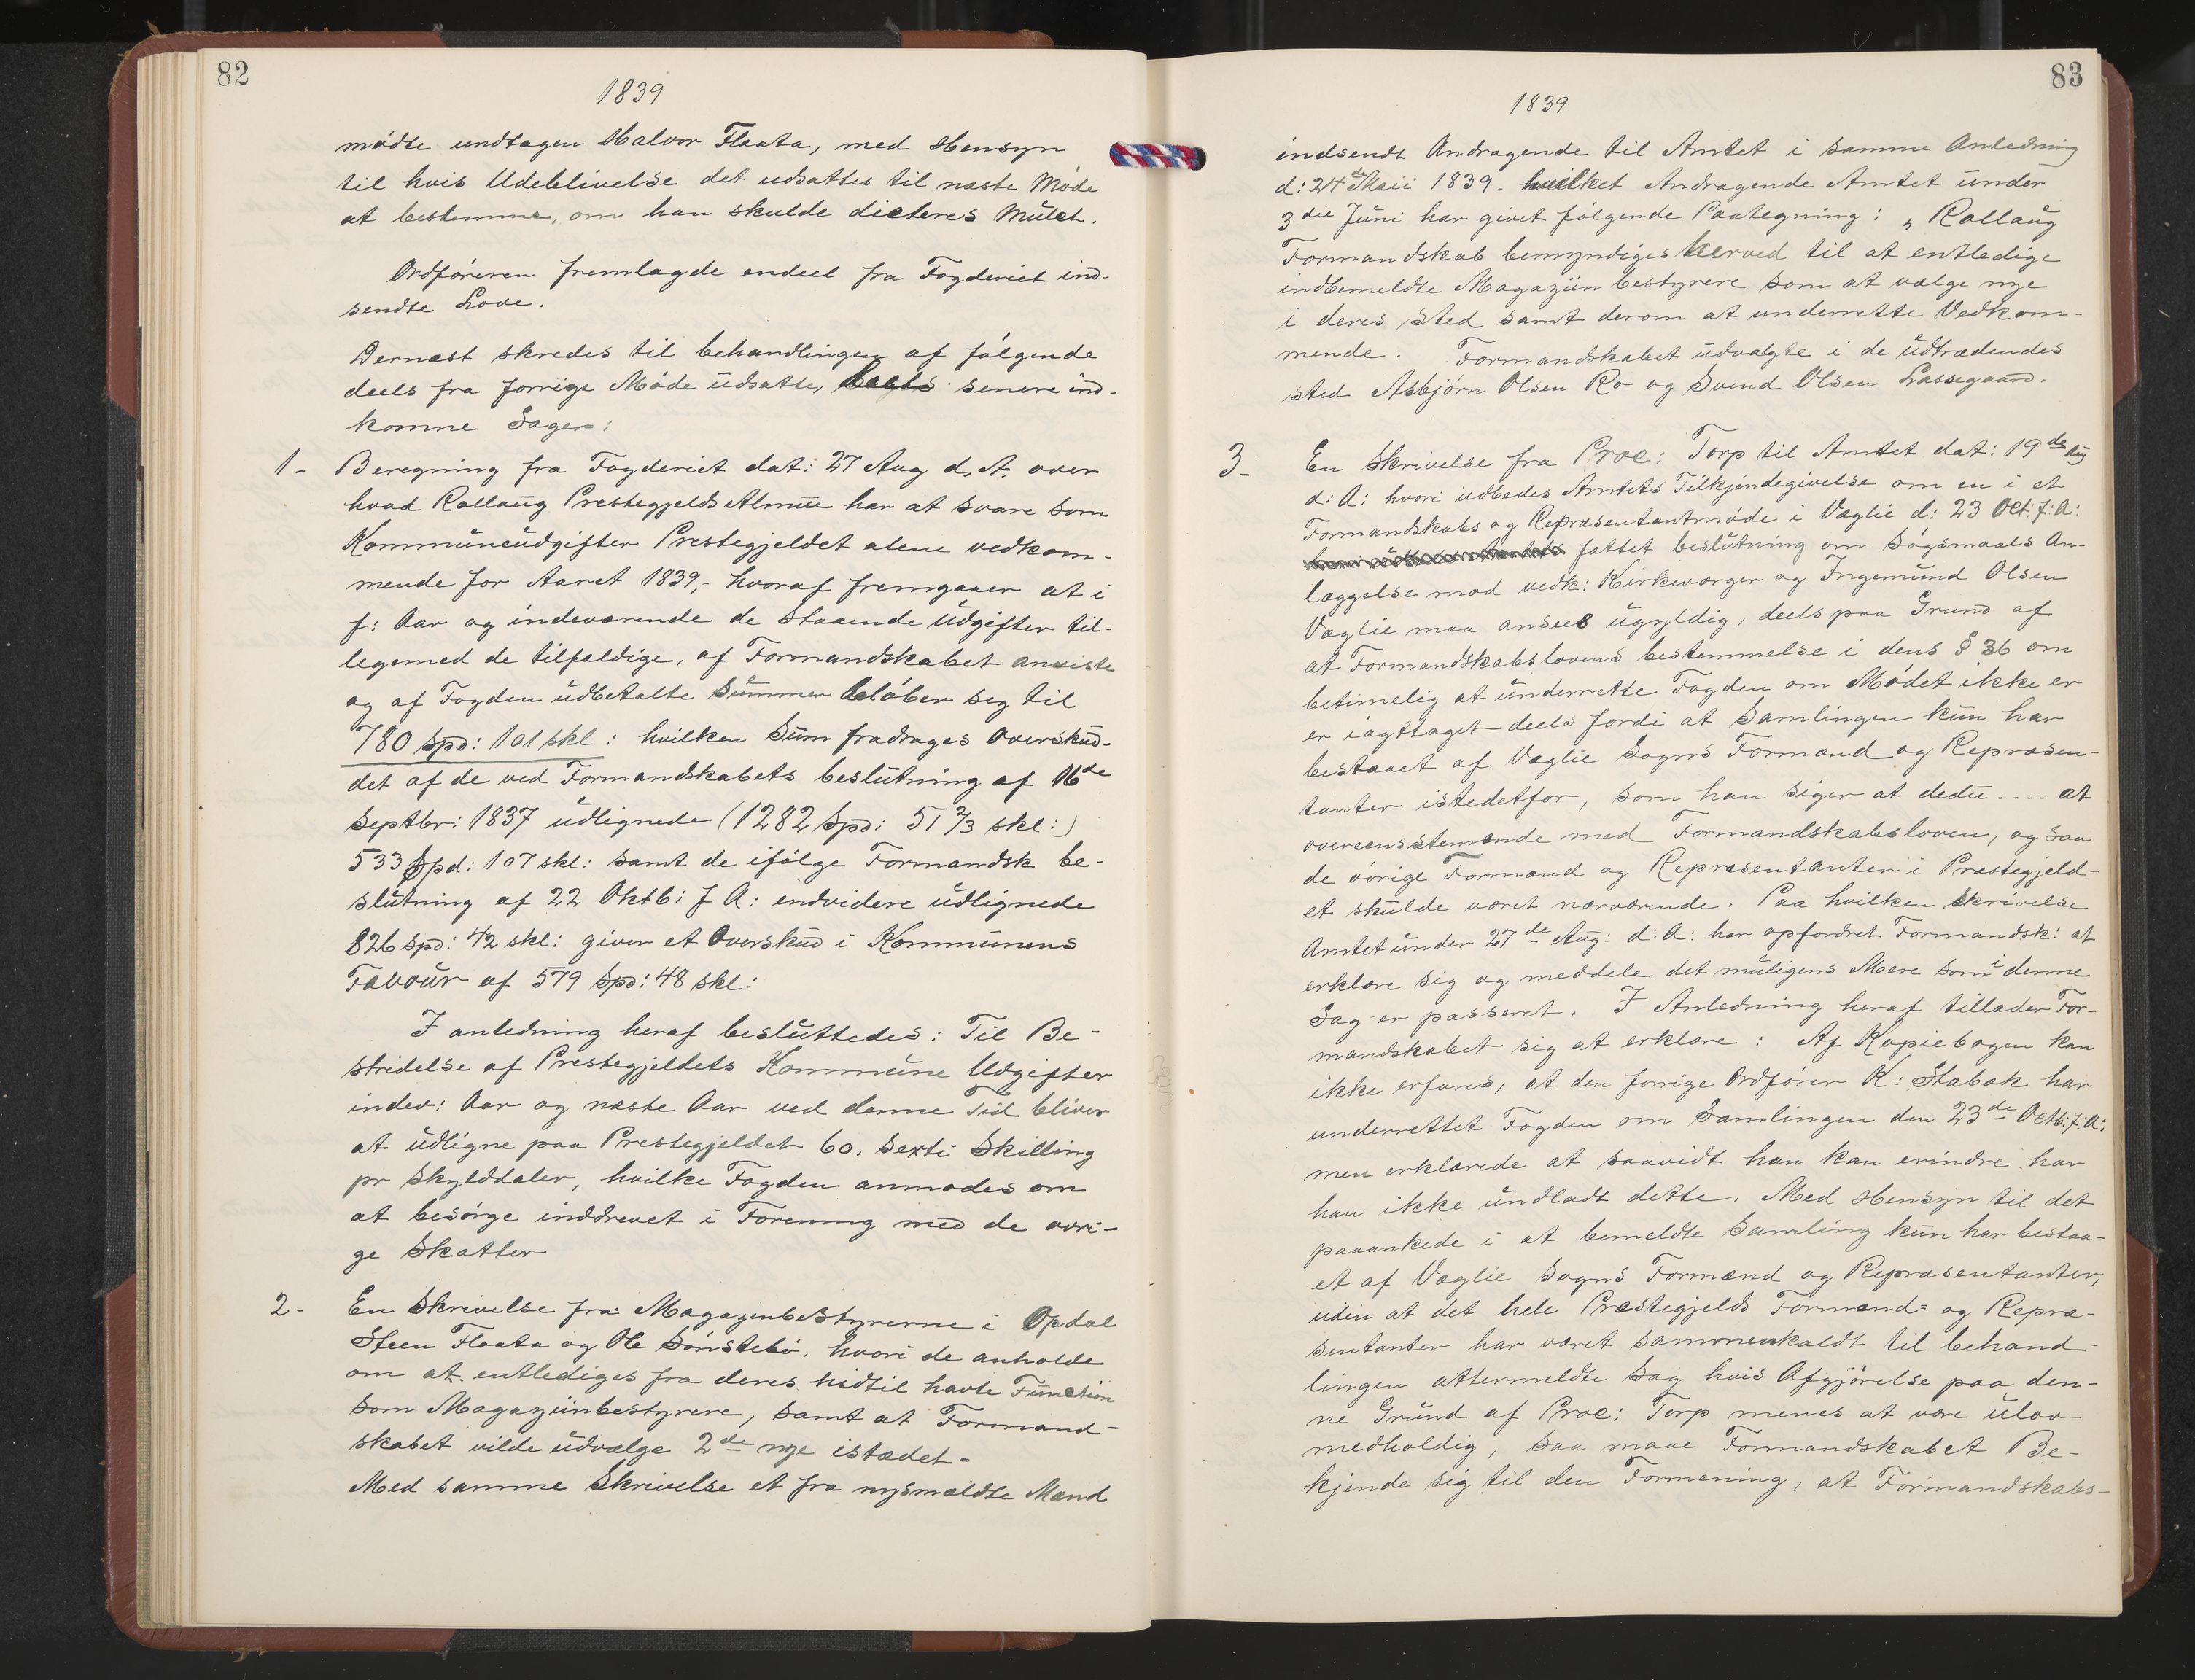 82
1839
mødte undtagen Halvor Flaata, med Hensyn
til hvis Udeblivelse det udsattes til næste Møde
at bestemme, om han skulde dicteres Mulct.
Ordføreren fremlagde endeel fra Fogderiet ind-
sendte Love.
Dernæst skredes til behandlingen af følgende
deels fra forrige Møde udsatte, deels senere ind-
komne Sager:
1- Beregning fra Fogderiet dat: 27 Aug d. A. over
hvad Rollaug Prestegjelds Almue har at svare som
Kommuneudgifter Prestegjeldet alene vedkom-
mende for Aaret 1839,- hvoraf fremgaaer at i
f: Aar og indeværende de staaende Udgifter til-
legemed de tilfældige, af Formandskabet anviste
og af Fogden udbetalte Summer beløber seg til
780 Spd: 101 skl: hvilken Sum fradrages Overskud-
det af de ved Formandskabets beslutning af 16de
Septbr: 1837 udlignede (1282 Spd: 51 2/3 skl:)
533 Spd: 107 skl: samt de ifølge Formandsk be-
slutning af 22 Oktb: f A: endvidere udlignede
826 Spd: 42 skl: giver et Overskud i Kommunens
Favour af 579 Spd: 48 skl:
I anledning heraf besluttedes: Til Be-
stridelse af Prestegjeldets Kommune Udgifter
indev: Aar og næste Aar ved denne Tid bliver
at udligne paa Prestegjeldet 60. sexti Skilling
pr Skylddaler, hvilke Fogden anmodes om
at besørge inddrevet i Forening med de øvri-
ge Skatter
2- En Skrivelse fra Magazinbestyrerne i Opdal
Steen Flaata og Ole Sønstebø. hvori de anholde
om at entlediges fra deres hidtil havte Function
som Magazinbestyrere, samt at Formand-
skabet vilde udvælge 2de nye istædet-
Med samme Skrivelse et fra nysmældte Mænd
83
1839
indsendt Andragende til Amtet i samme Anledning
d: 24de Maii 1839. hvilket Andragende Amtet under
3die Juni har givet følgende Paategning: „Rollaug
Formandskab bemyndiges herved til at entledige
indbemeldte Magaziinbestyrere som at vælge nye
i deres sted samt derom at underrette Vedkom-
mende. Formandskabet udvalgte i de udtrædendes
sted Asbjørn Olsen Ro og Svend Olsen Lassegaard.
3- En Skrivelse fra Proc: Torp til Amtet dat: 19de Aug
d: A: hvori udbedes Amtets Tilkjendegivelse om en i et
Formandskabs og Repræsentantmøde i Væglie d: 23 Oct: f: A:
fattet beslutning om Søgsmaals An-
læggelse mod vedk: Kirkeværger og Ingemund Olsen
Væglie maa ansees ugyldig, deels paa Grund af
at Formandskabslovens bestemmelse i dens § 36 om
betimelig at underrette Fogden om Mødet ikke er
er iagttaget deels fordi at Samlingen kun har
bestaaet af Væglie Sogns Formænd og Repræsen-
tanter istedetfor, som han siger at dedu.... at
overeensstemende med Formandskabsloven, og saa
de øvrige Formænd og Repræsentanter i Præstegjeld-
et skulde været nærværende. Paa hvilken Skrivelse
Amtet under 27de Aug: d: A: har opfordret Formandsk: at
erklære sig og meddele det muligens Mere som i denne
Sag er passeret. I Anledning heraf tillader For-
mandskabet sig at erklære: Af Kopiebogen kan
ikke erfares, at den forrige Ordfører K: Stabæk har
underrettet Fogden om Samlingen den 23de Octb: f: A:
men erklærede at saavidt han kan erindre har
han ikke undladt dette. Med Hensyn til det
paaankede i at bemeldte Samling kun har bestaa-
et af Væglie Sogns Formænd og Repræsentanter,
uden at det hele Præstegjelds Formænd= og Repræ-
sentanter har været sammenkaldt til behand-
lingen attermeldte Sag hvis Afgjørelse paa den-
ne Grund af Proc: Torp menes at være ulov-
medholdig, saa maae Formandskabet Be-
kjende sig til den Formening, at Formandskabs-